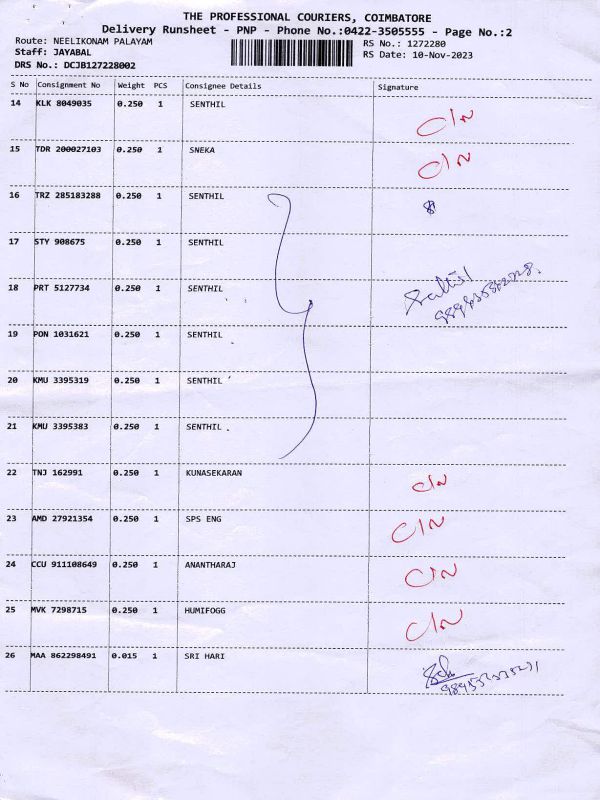 THE PROFESSIONAL COURIERS, COIMBATORE
Delivery Runsheet - PNP - Phone No.:0422-3505555 - Page No.:2
Route: NEELIKONAM PALAYAM RS No.: 1272280
Staff: JAYABAL RS Date: 10-Nov-2023
DRS No.: DCJB127228002
S No Consignment No Weight PCS Consignee Details Signature
14 KLK 8049035 0.250 1 SENTHIL C/N
15 TDR 200027103 0.250 1 SNEKA C/N
16 TRZ 285183288 0.250 1 SENTHIL
17 STY 908675 0.250 1 SENTHIL
18 PRT 5127734 0.250 1 SENTHIL
19 PON 1031621 0.250 1 SENTHIL
20 KMU 3395319 0.250 1 SENTHIL
21 KMU 3395383 0.250 1 SENTHIL
22 TNJ 162991 0.250 1 KUNASEKARAN C/N
23 AMD 27921354 0.250 1 SPS ENG C/N
24 CCU 911108649 0.250 1 ANANTHARAJ C/N
25 MVK 7298715 0.250 1 HUMIFOGG C/N
26 MAA 862298491 0.015 1 SRI HARI